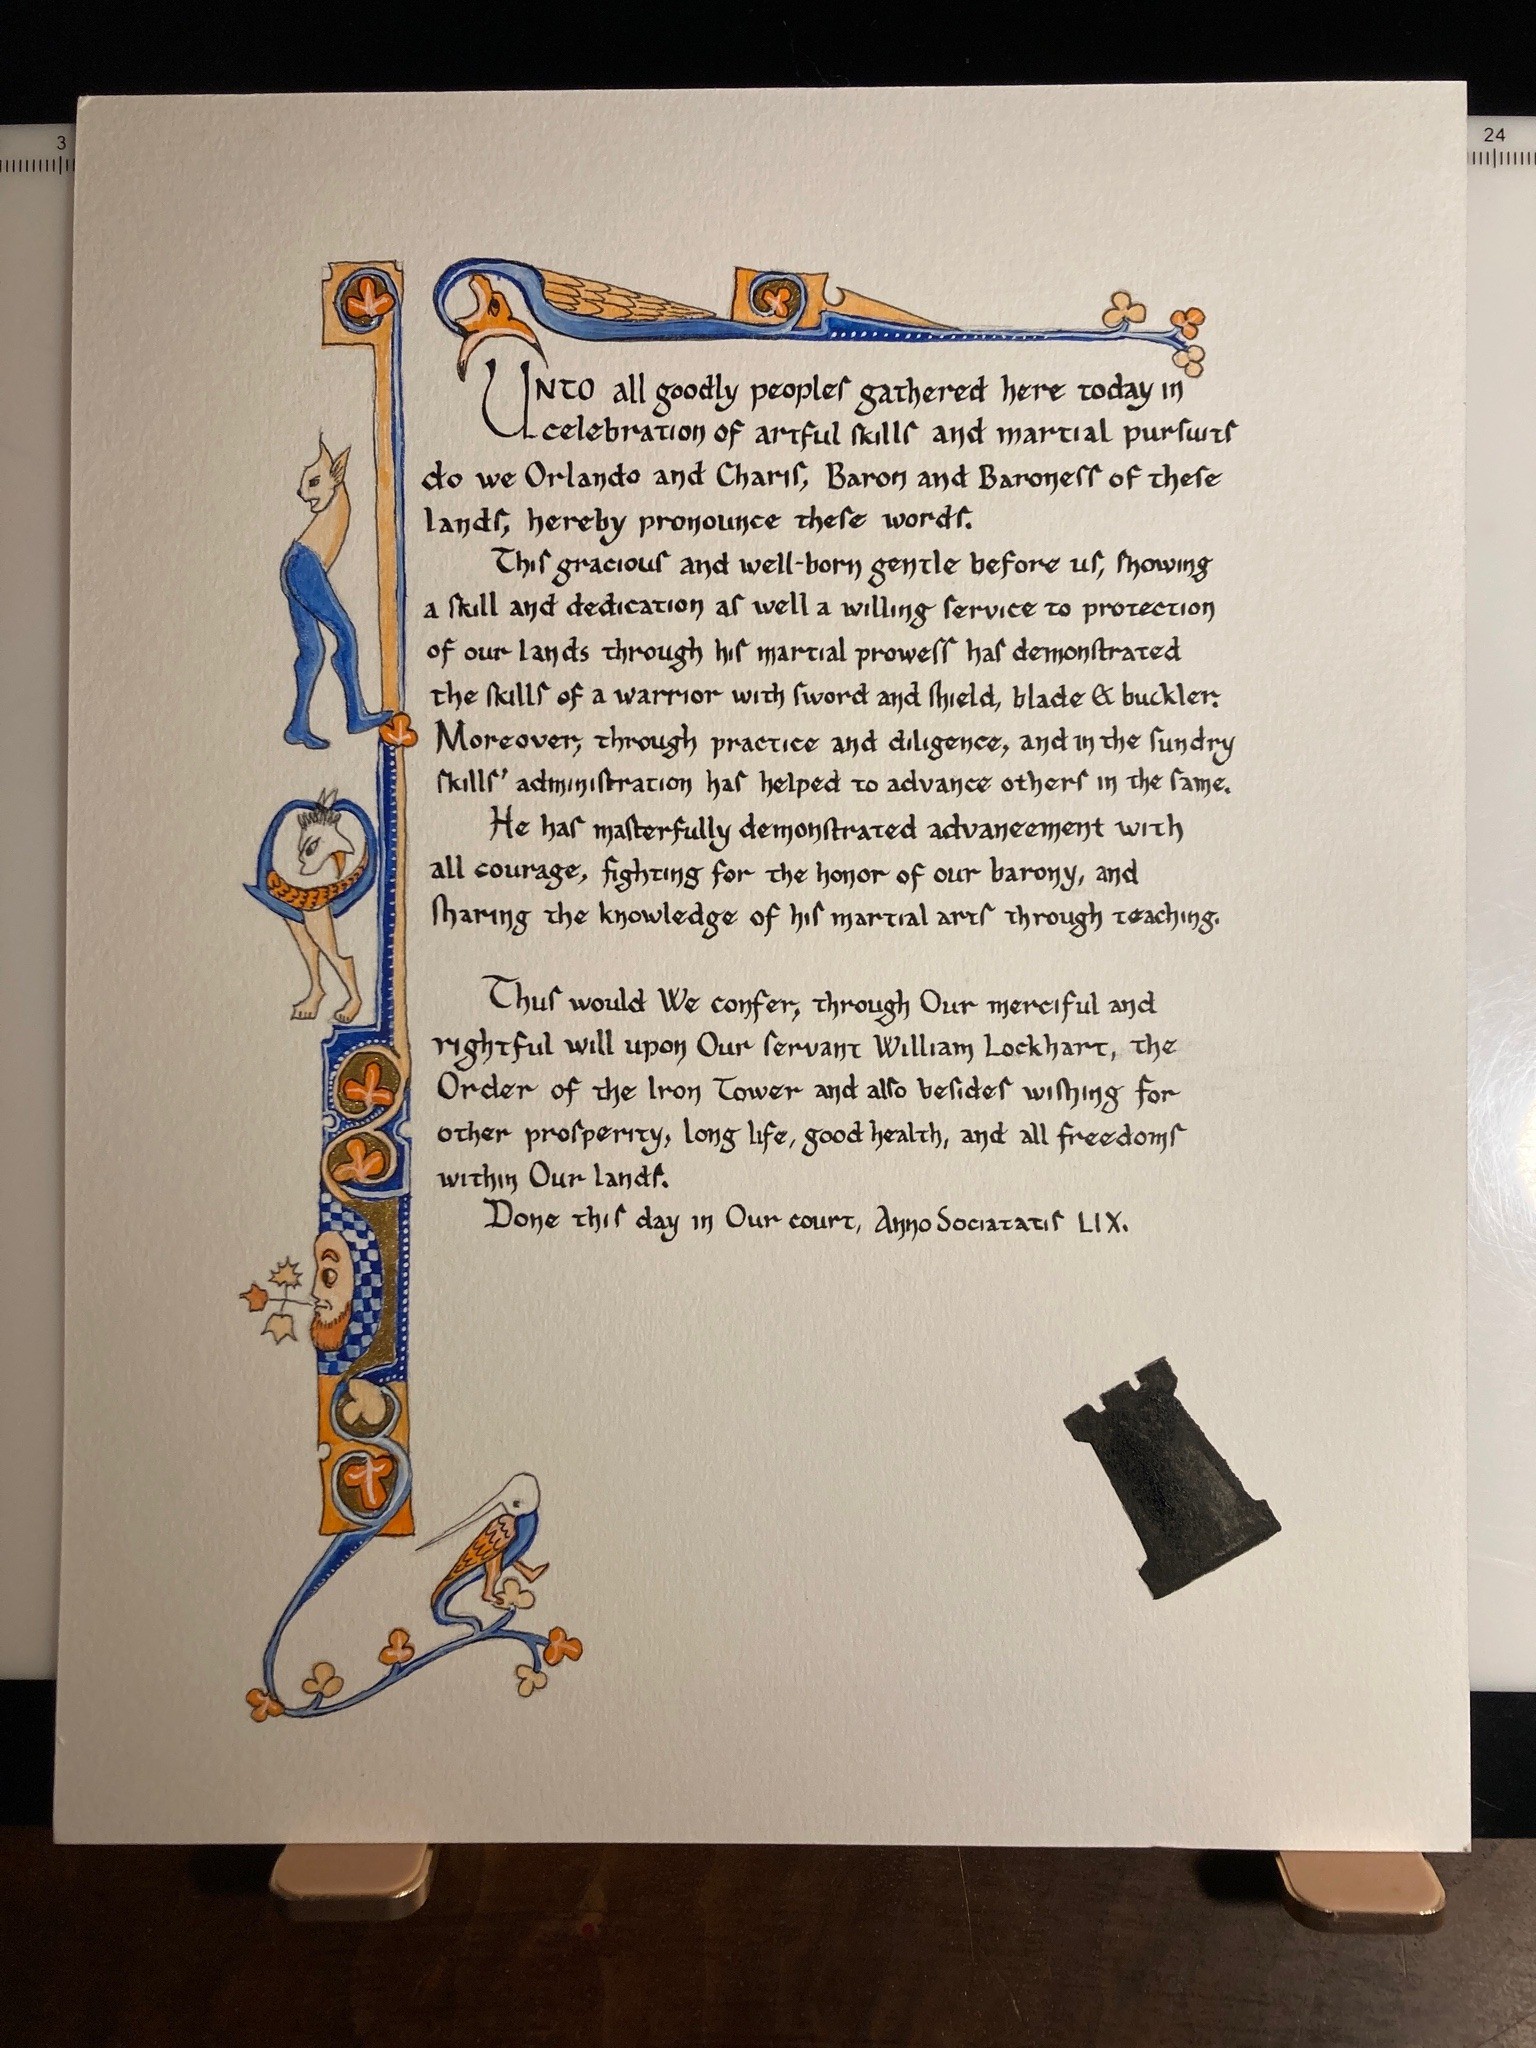 3
24
Unto all goodly peoples gathered here today in
celebration of artful skills and martial pursuits
do we Orlando and Charis, Baron and Baroness of these
lands, hereby pronounce these words.
This gracious and well-born gentle before us, showing
a skill and dedication as well a willing service to protection
of our lands through his martial prowess has demonstrated
the skills of a warrior with sword and shield, blade & buckler.
Moreover, through practice and diligence, and in the sundry
skills' administration has helped to advance others in the same.
He has masterfully demonstrated advancement with
all courage, fighting for the honor of our barony, and
sharing the knowledge of his martial arts through teaching.
Thus would We confer, through Our merciful and
rightful will upon Our servant William Lockhart, the
Order of the Iron Tower and also besides wishing for
other prosperity, long life, good health, and all freedoms
within Our lands.
Done this day in Our court, Anno Sociatatis LIX.